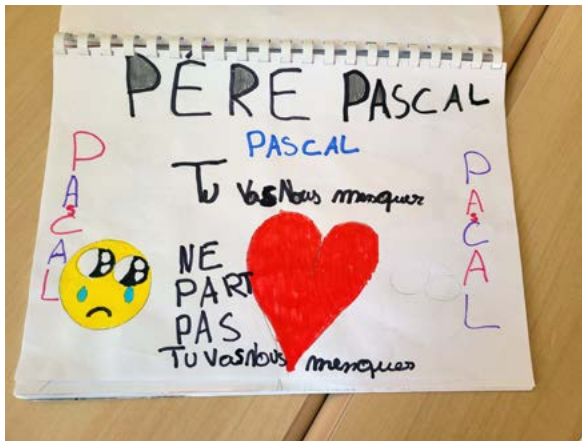 PÈRE PASCAL
PASCAL
PASCAL
Tu Vas Nous manquer
NE
PART
PAS
Tu Vas Nous manquer
PASCAL